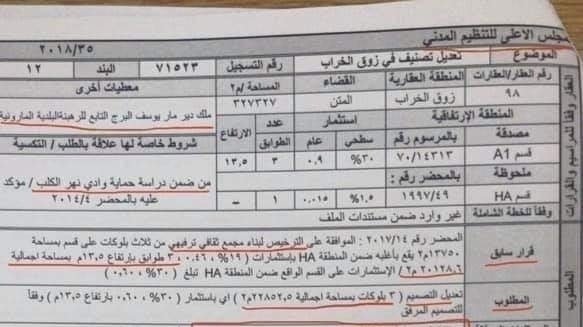 مجلس الاعلى للتنظيم المدني
٢٠١٨/٣٥
الموضوع
تعديل تصنيف في زوق الخراب
رقم التسجيل
٧١٥٢٣
البند
١٢
رقم العقار/العقارات
المنطقة العقارية
القضاء
المساحة/م٢
معطيات أخرى
٩٨
زوق الخراب
المتن
٣٢٧٣٢٧
ملك دير مار يوسف البرج التابع للرهبنة البلدية المارونية
المنطقة الارتفاقية
استثمار
عدد الطوابق
الارتفاع
شروط خاصة لها علاقة بالطلب / التكسية
مصدقة
بالمرسوم رقم
سطحي
عام
قسم A1
٧٠/١٤٣١٣
%٣٠
٠.٩
٣
١٣,٥
من ضمن دراسة حماية وادي نهر الكلب / مؤكد
عليه بالمحضر ٢٠١٤/٤
ملحوظة
بالمحضر رقم :
قسم HA
١٩٩٧/٤٩
%١.٥
٠.٠١٥
١
–
وفقا للخطة الشاملة
غير وارد ضمن مستندات الملف
العقار وفقا للمراسيم والقرارات
قرار سابق
المحضر رقم ٢٠١٧/١٤: الموافقة على الترخيص لبناء مجمع ثقافي ترفيهي من ثلاث بلوكات على قسم بمساحة
١٣٧٥٠م٢ يقع بأغلبه ضمن المنطقة HA بإستثمارات (١٩% ، ٠.٤٦ ، ٣ طوابق بإرتفاع ١٣,٥م بمساحة اجمالية
٢٠١٢٨,٦ م٢ / الإستثمارات على القسم الواقع ضمن المنطقة HA تبلغ (٣٠% ، ٠,٦٠)
المطلوب
المطلوب
تعديل التصميم (٣ بلوكات بمساحة اجمالية ٢٢٨٥٢,٥م٢) اي باستثمار (٣٠% ، ٠.٦٠ بارتفاع ١٣,٥م) وفقاً
للتصميم المرفق